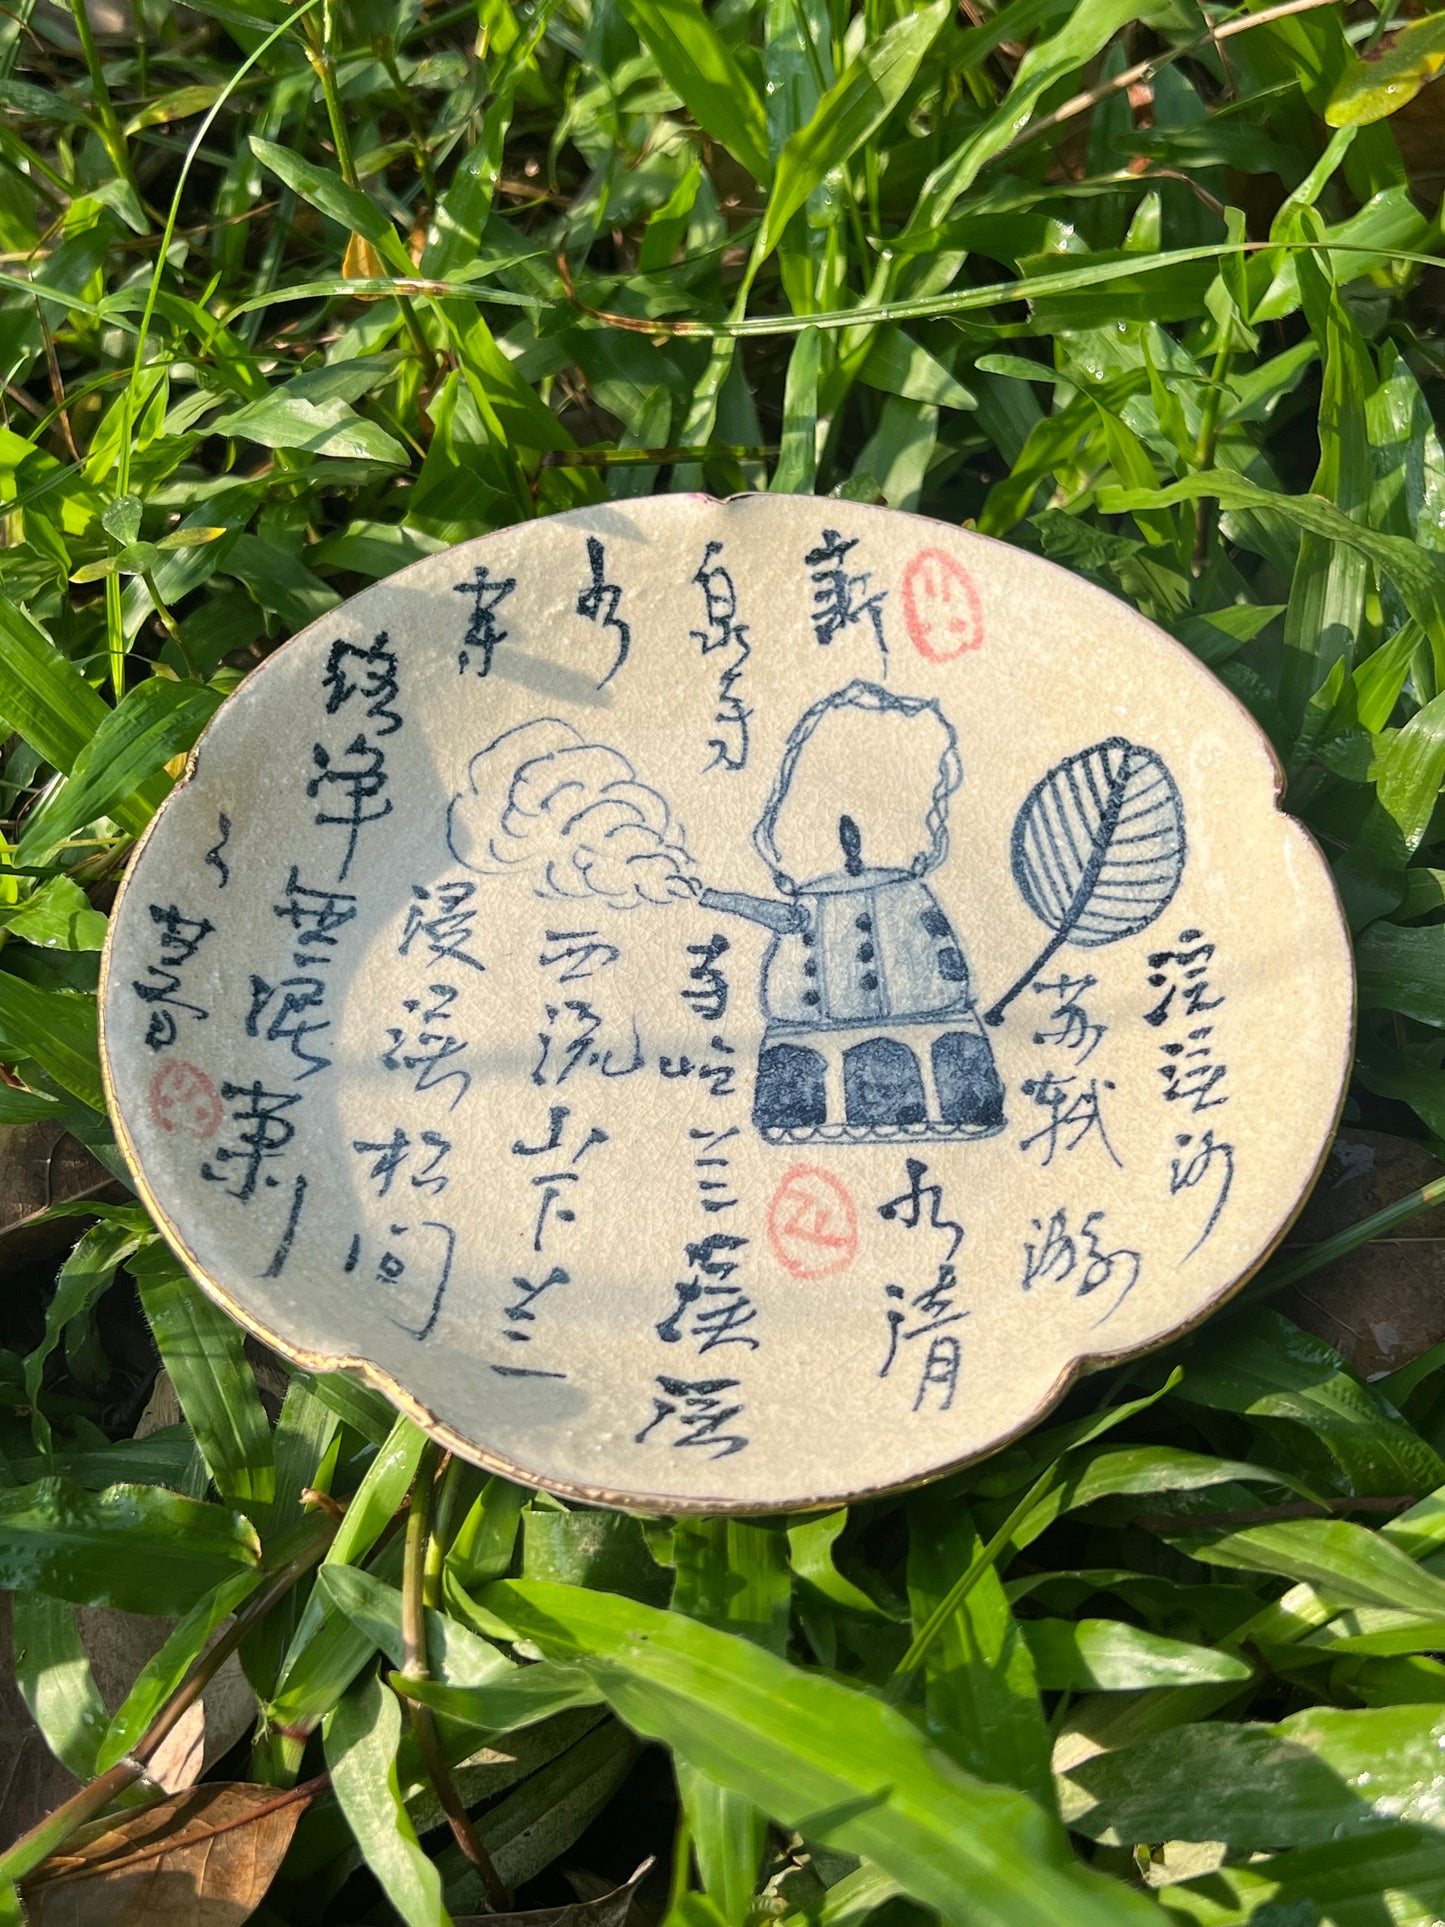 浣溪沙
苏轼 游
蕲水清
泉寺寺临兰溪溪
水西流山下兰
芽浸溪松间
路净无泥萧